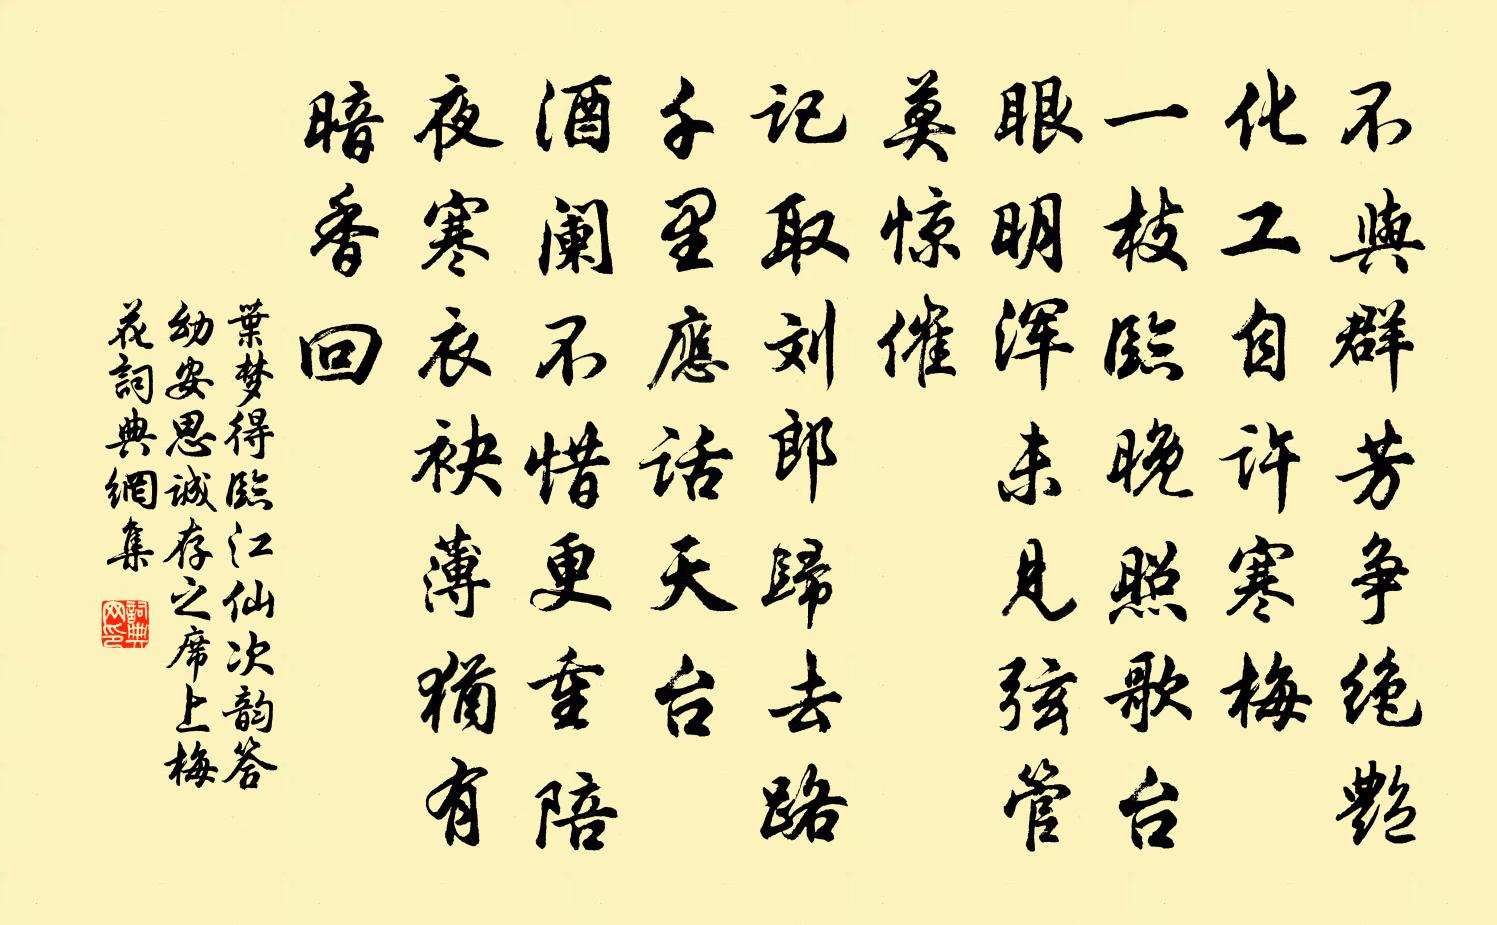 不與群芳争绝艷
化工自许寒梅
一枝臨晚照歌台
眼明浑未見弦管
莫惊催
记取刘郎歸去路
千里應话天台
酒阑不惜更重陪
夜寒衣袂薄猶有
暗香回
葉梦得臨江仙次韵答
幼安思诚存之席上梅
花詞典網集
詞典
网印